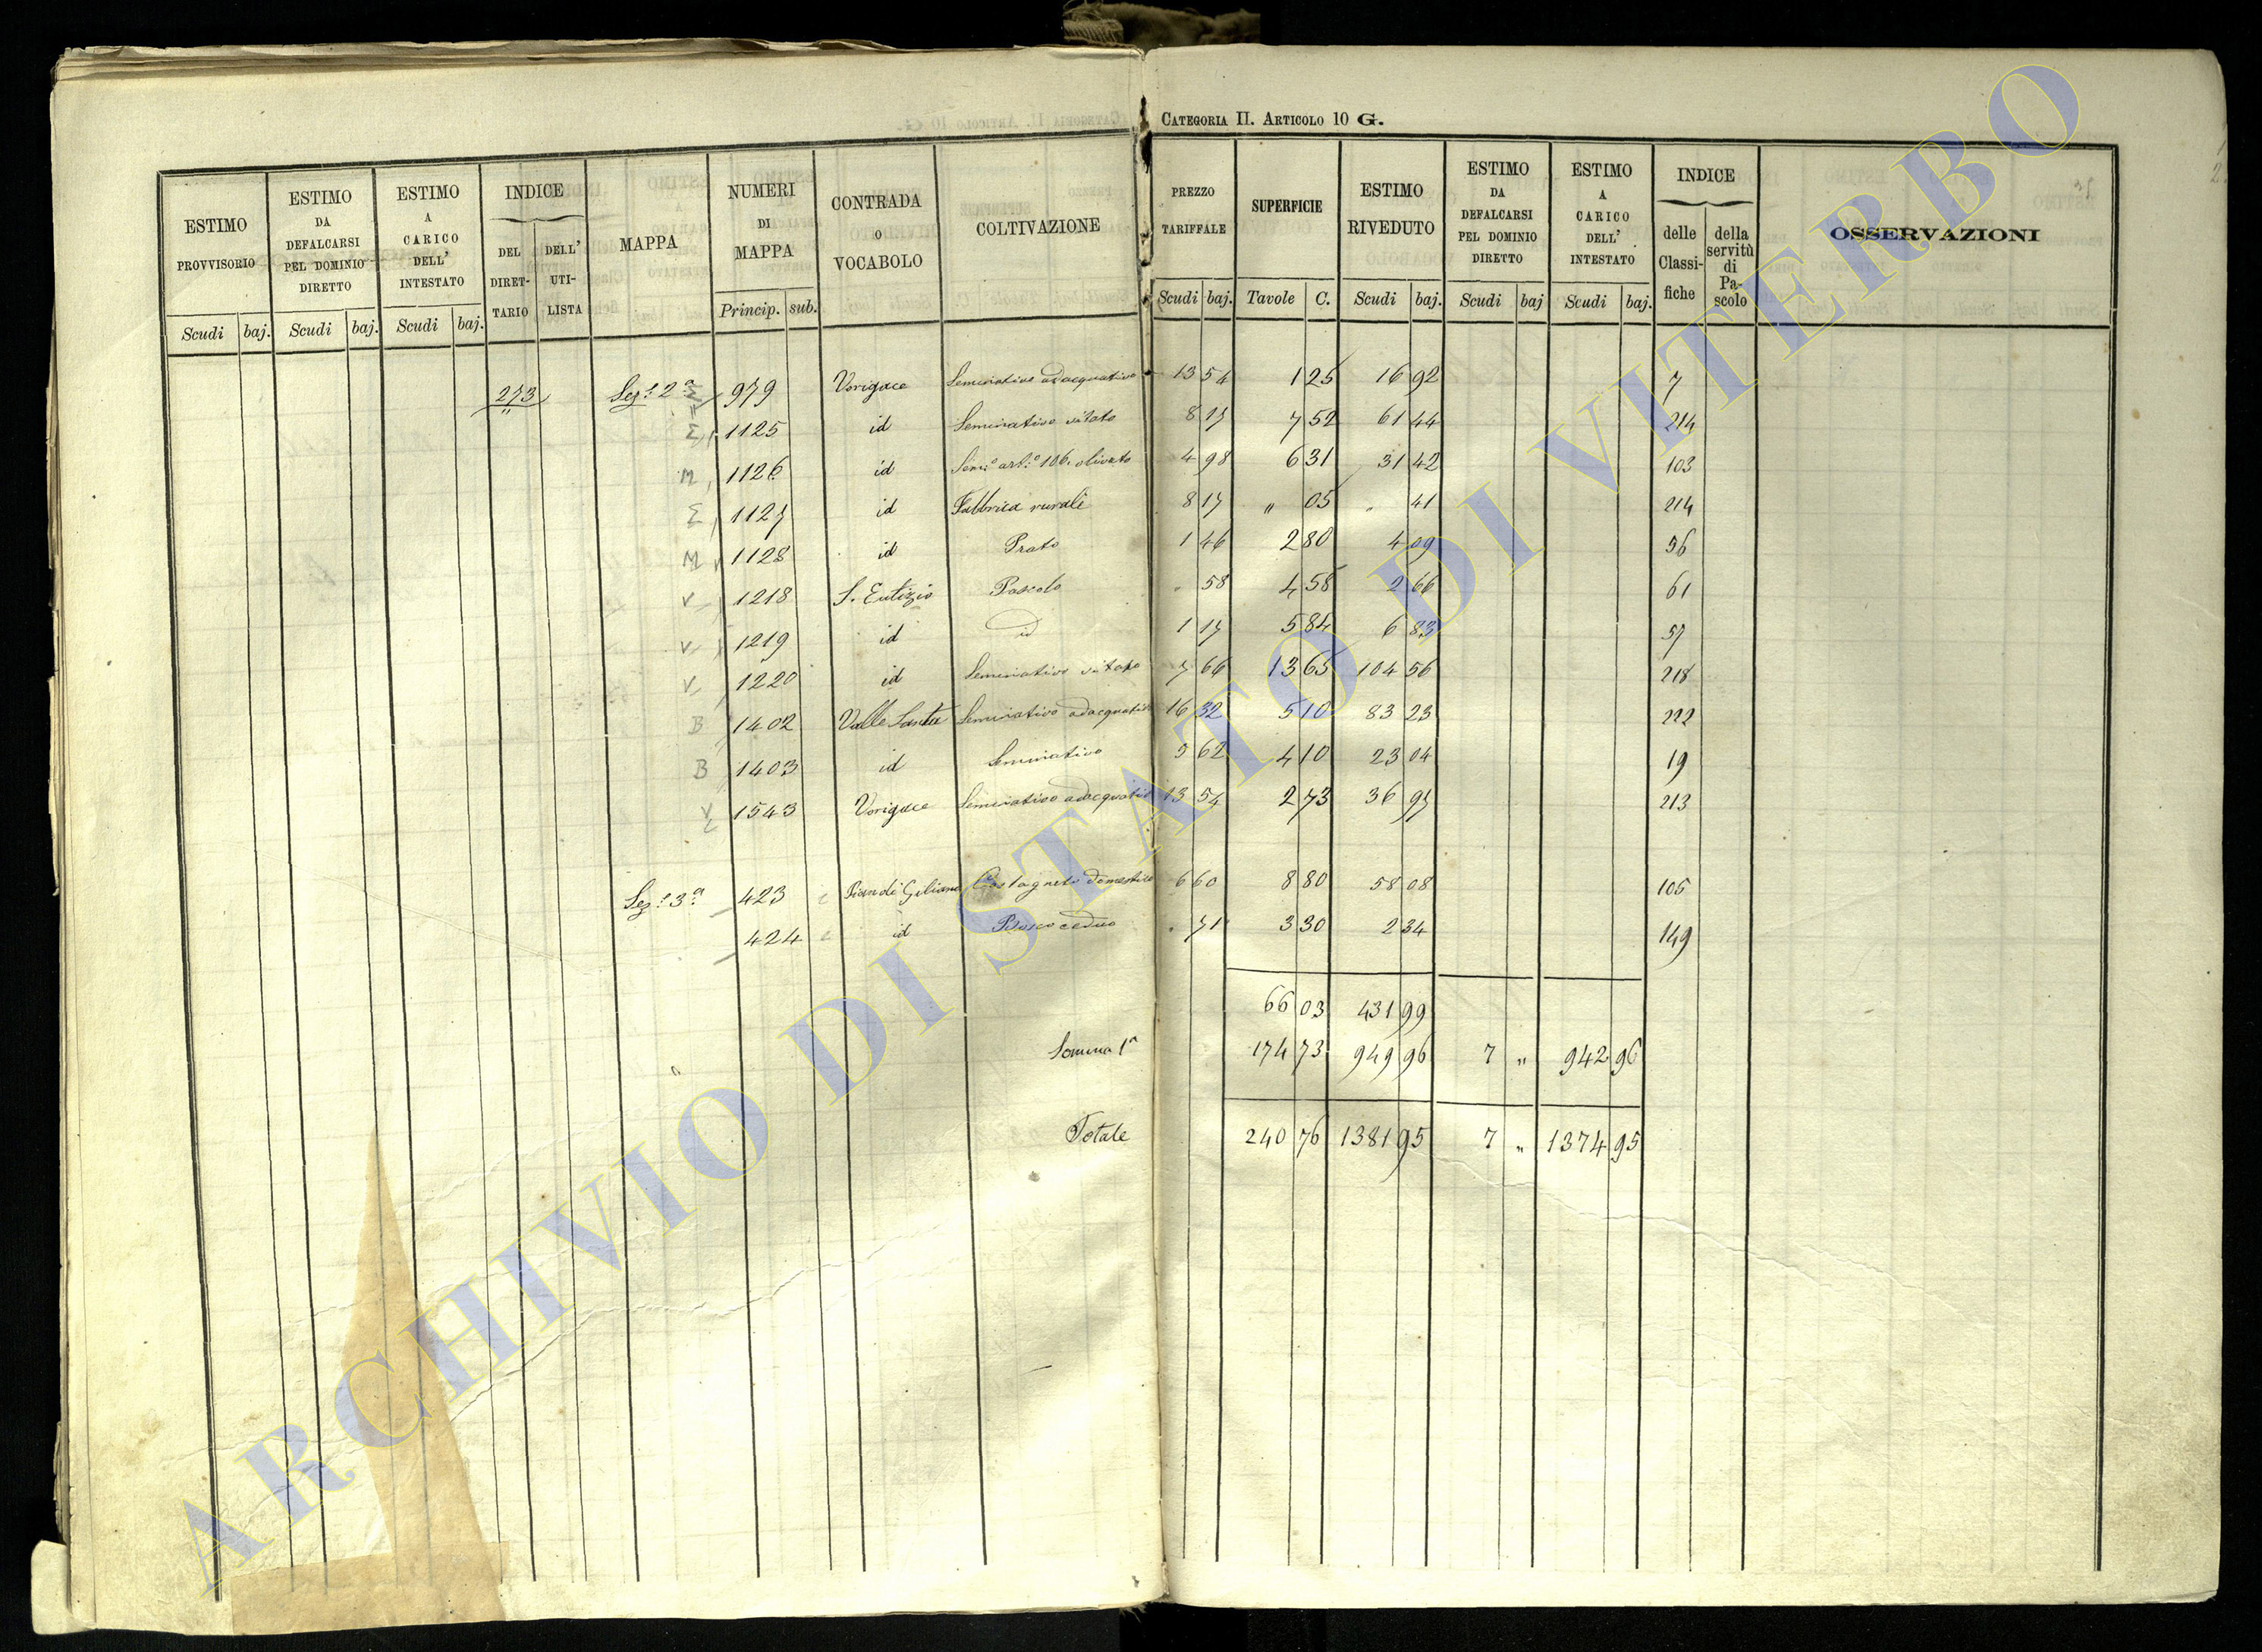 CATEGORIA II. ARTICOLO 10 G.
ESTIMO PROVVISORIO
ESTIMO DA DEFALCARSI PEL DOMINIO DIRETTO
ESTIMO A CARICO DELL' INTESTATO
INDICE
DEL DIRET-TARIO
DELL' UTI-LISTA
MAPPA
NUMERI DI MAPPA
CONTRADA O VOCABOLO
COLTIVAZIONE
PREZZO TARIFFALE
SUPERFICIE
ESTIMO RIVEDUTO
ESTIMO DA DEFALCARSI PEL DOMINIO DIRETTO
ESTIMO A CARICO DELL' INTESTATO
INDICE
delle Classi-fiche
della servitù di Pa-scolo
OSSERVAZIONI
Scudi baj. Scudi baj. Scudi baj. Princip. sub. Scudi baj. Tavole C. Scudi baj. Scudi baj Scudi baj.
273 Sez.e 2a 979 Vorigace Seminativo adacquativo 13 54 1 25 16 92 7
1125 id Seminativo vitato 8 17 7 52 61 44 214
M 1126 id Sem.o arb.o 106. olivato 4 98 6 31 31 42 103
1127 id Fabbrica rurale 8 17 " 05 " 41 214
M 1128 id Prato 1 46 2 80 4 09 56
V 1218 S. Eutizio Pascolo " 58 4 58 2 66 61
V 1219 id id 1 17 5 84 6 83 57
V 1220 id Seminativo vitato 7 66 13 65 104 56 218
B 1402 Valle Santa Seminativo adacquativo 16 32 5 10 83 23 222
B 1403 id Seminativo 5 62 4 10 23 04 19
V 1543 Vorigace Seminativo adacquativo 13 54 2 73 36 97 213
Sez.e 3a 423 Pian di Giliano Castagneto domestico 6 60 8 80 58 08 105
424 id Bosco ceduo " 71 3 30 2 34 149
66 03 431 99
Somma 1a 174 73 949 96 7 " 942 96
Totale 240 76 1381 95 7 " 1374 95
ARCHIVIO DI STATO DI VITERBO